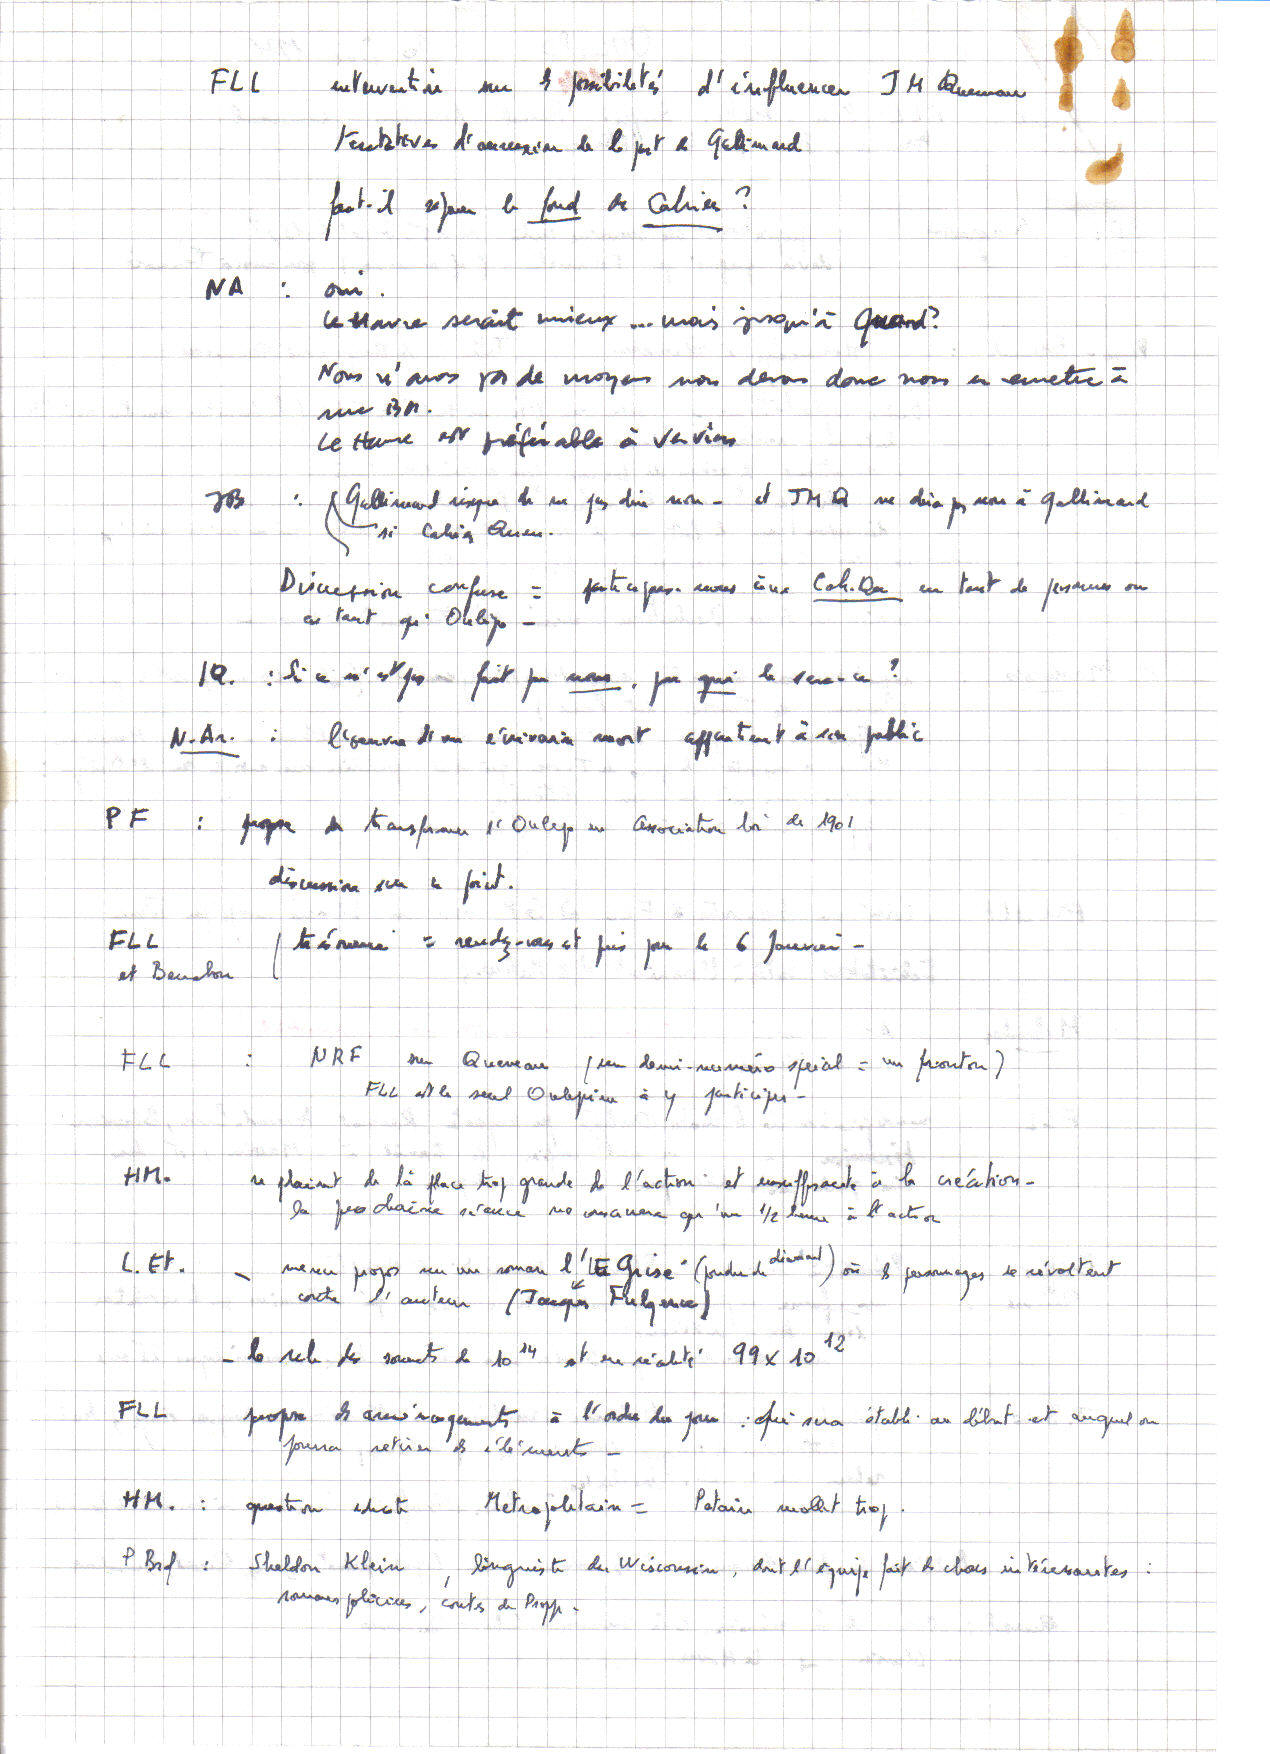 FLL intervention sur ls possibilités d'influencer JM Queneau
tentatives d'annexion de la part de Gallimard
faut-il séparer le fond de Cahier ?
NA : oui.
Le Havre serait mieux ... mais jusqu'à Quand ?
Nous n'avons pas de moyens nous devons donc nous en remettre à
une BM.
Le Havre est préférable à Verviers
JB : Gallimard risque de ne pas dire non - et JMQ ne dira pas non à Gallimard
si Cahiers Quen.
Discussion confuse = participons-nous aux Cah. Qu en tant de personnes ou
en tant qu'Oulipo -
IQ. : Si ce n'est pas fait par nous, par qui le sera-ce ?
N.Ar. : l'oeuvre d'un écrivain mort appartient à son public
PF : propose de transformer l'Oulipo en Association loi de 1901
discussion sur ce point.
FLL ( trésorerie = rendez-vous est pris pour le 6 Janvier -
et Benabou
FLL : NRF sur Queneau (un demi-numéro spécial = un fronton)
FLL est le seul Oulipien à y participer -
HM. se plaint de la place trop grande de l'action et insuffisante à la création -
la prochaine séance ne consacrera qu'un 1/2 heure à l'action
L.Et. - menu propos sur un roman l' "EGrisé" (poudre de diamant) où ls personnages se révoltent
contre l'auteur (Jacques Fulgence)
- le nbre des sonnets de 10^14 est en réalité 99 x 10^12
FLL propose ds aménagements à l'ordre du jour : qui sera établi au début et auquel on
pourra retirer ds éléments -
HM. : question Metropolitain = Petain mollit trop.
P Brf : Sheldon Klein, linguiste du Wisconsin, dont l'équipe fait ds choses intéressantes :
romans policiers, contes de Propp.